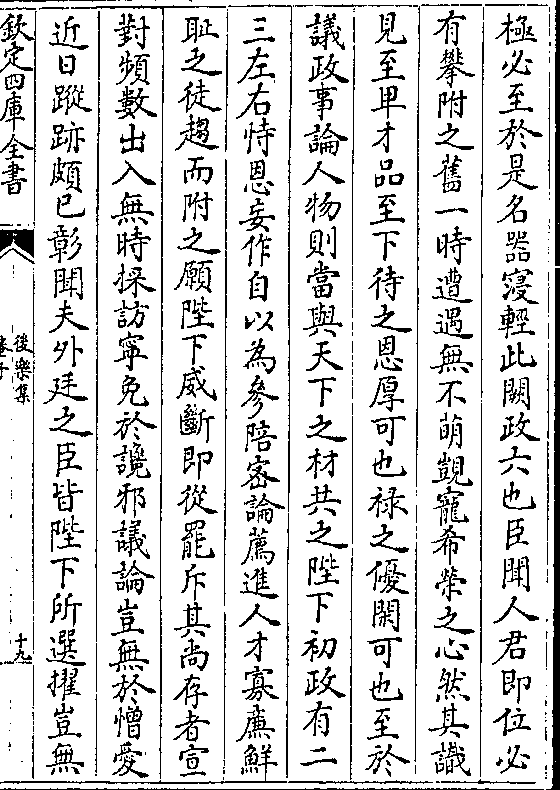 極必至於是名器寖輕此闕政六也臣聞人君即位必
有攀附之舊一時遭遇無不萌覬寵希榮之心然其識
見至卑才品至下待之恩厚可也祿之優閑可也至於
議政事論人物則當與天下之材共之陛下初政有二
三左右恃恩妄作自以為參陪密論薦進人才寡廉鮮
耻之徒趨而附之願陛下威斷即從罷斥其尚存者宣
對頻數出入無時採訪寧免於讒邪議論豈無於憎愛
近日蹤跡頗已彰聞夫外廷之臣皆陛下所選擢豈無
欽定四庫全書
後樂集
十九